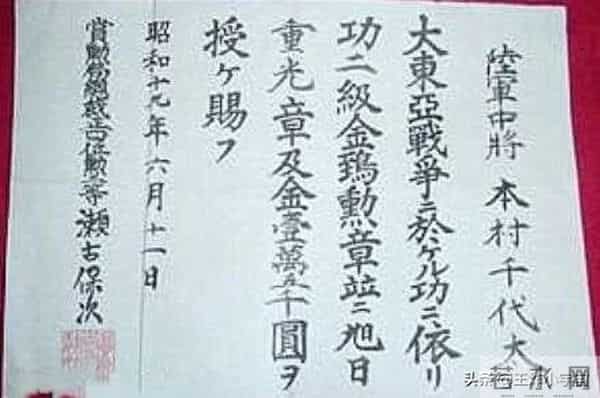 陸軍中將 本村千代太
大東亞戰爭ニ於ケル功ニ依リ
功二級金鵄勲章竝ニ旭日
重光章及金壹萬五千圓ヲ
授ケ賜フ
昭和十九年六月十一日
賞勲局總裁 位勲 等 瀬古保次
头条